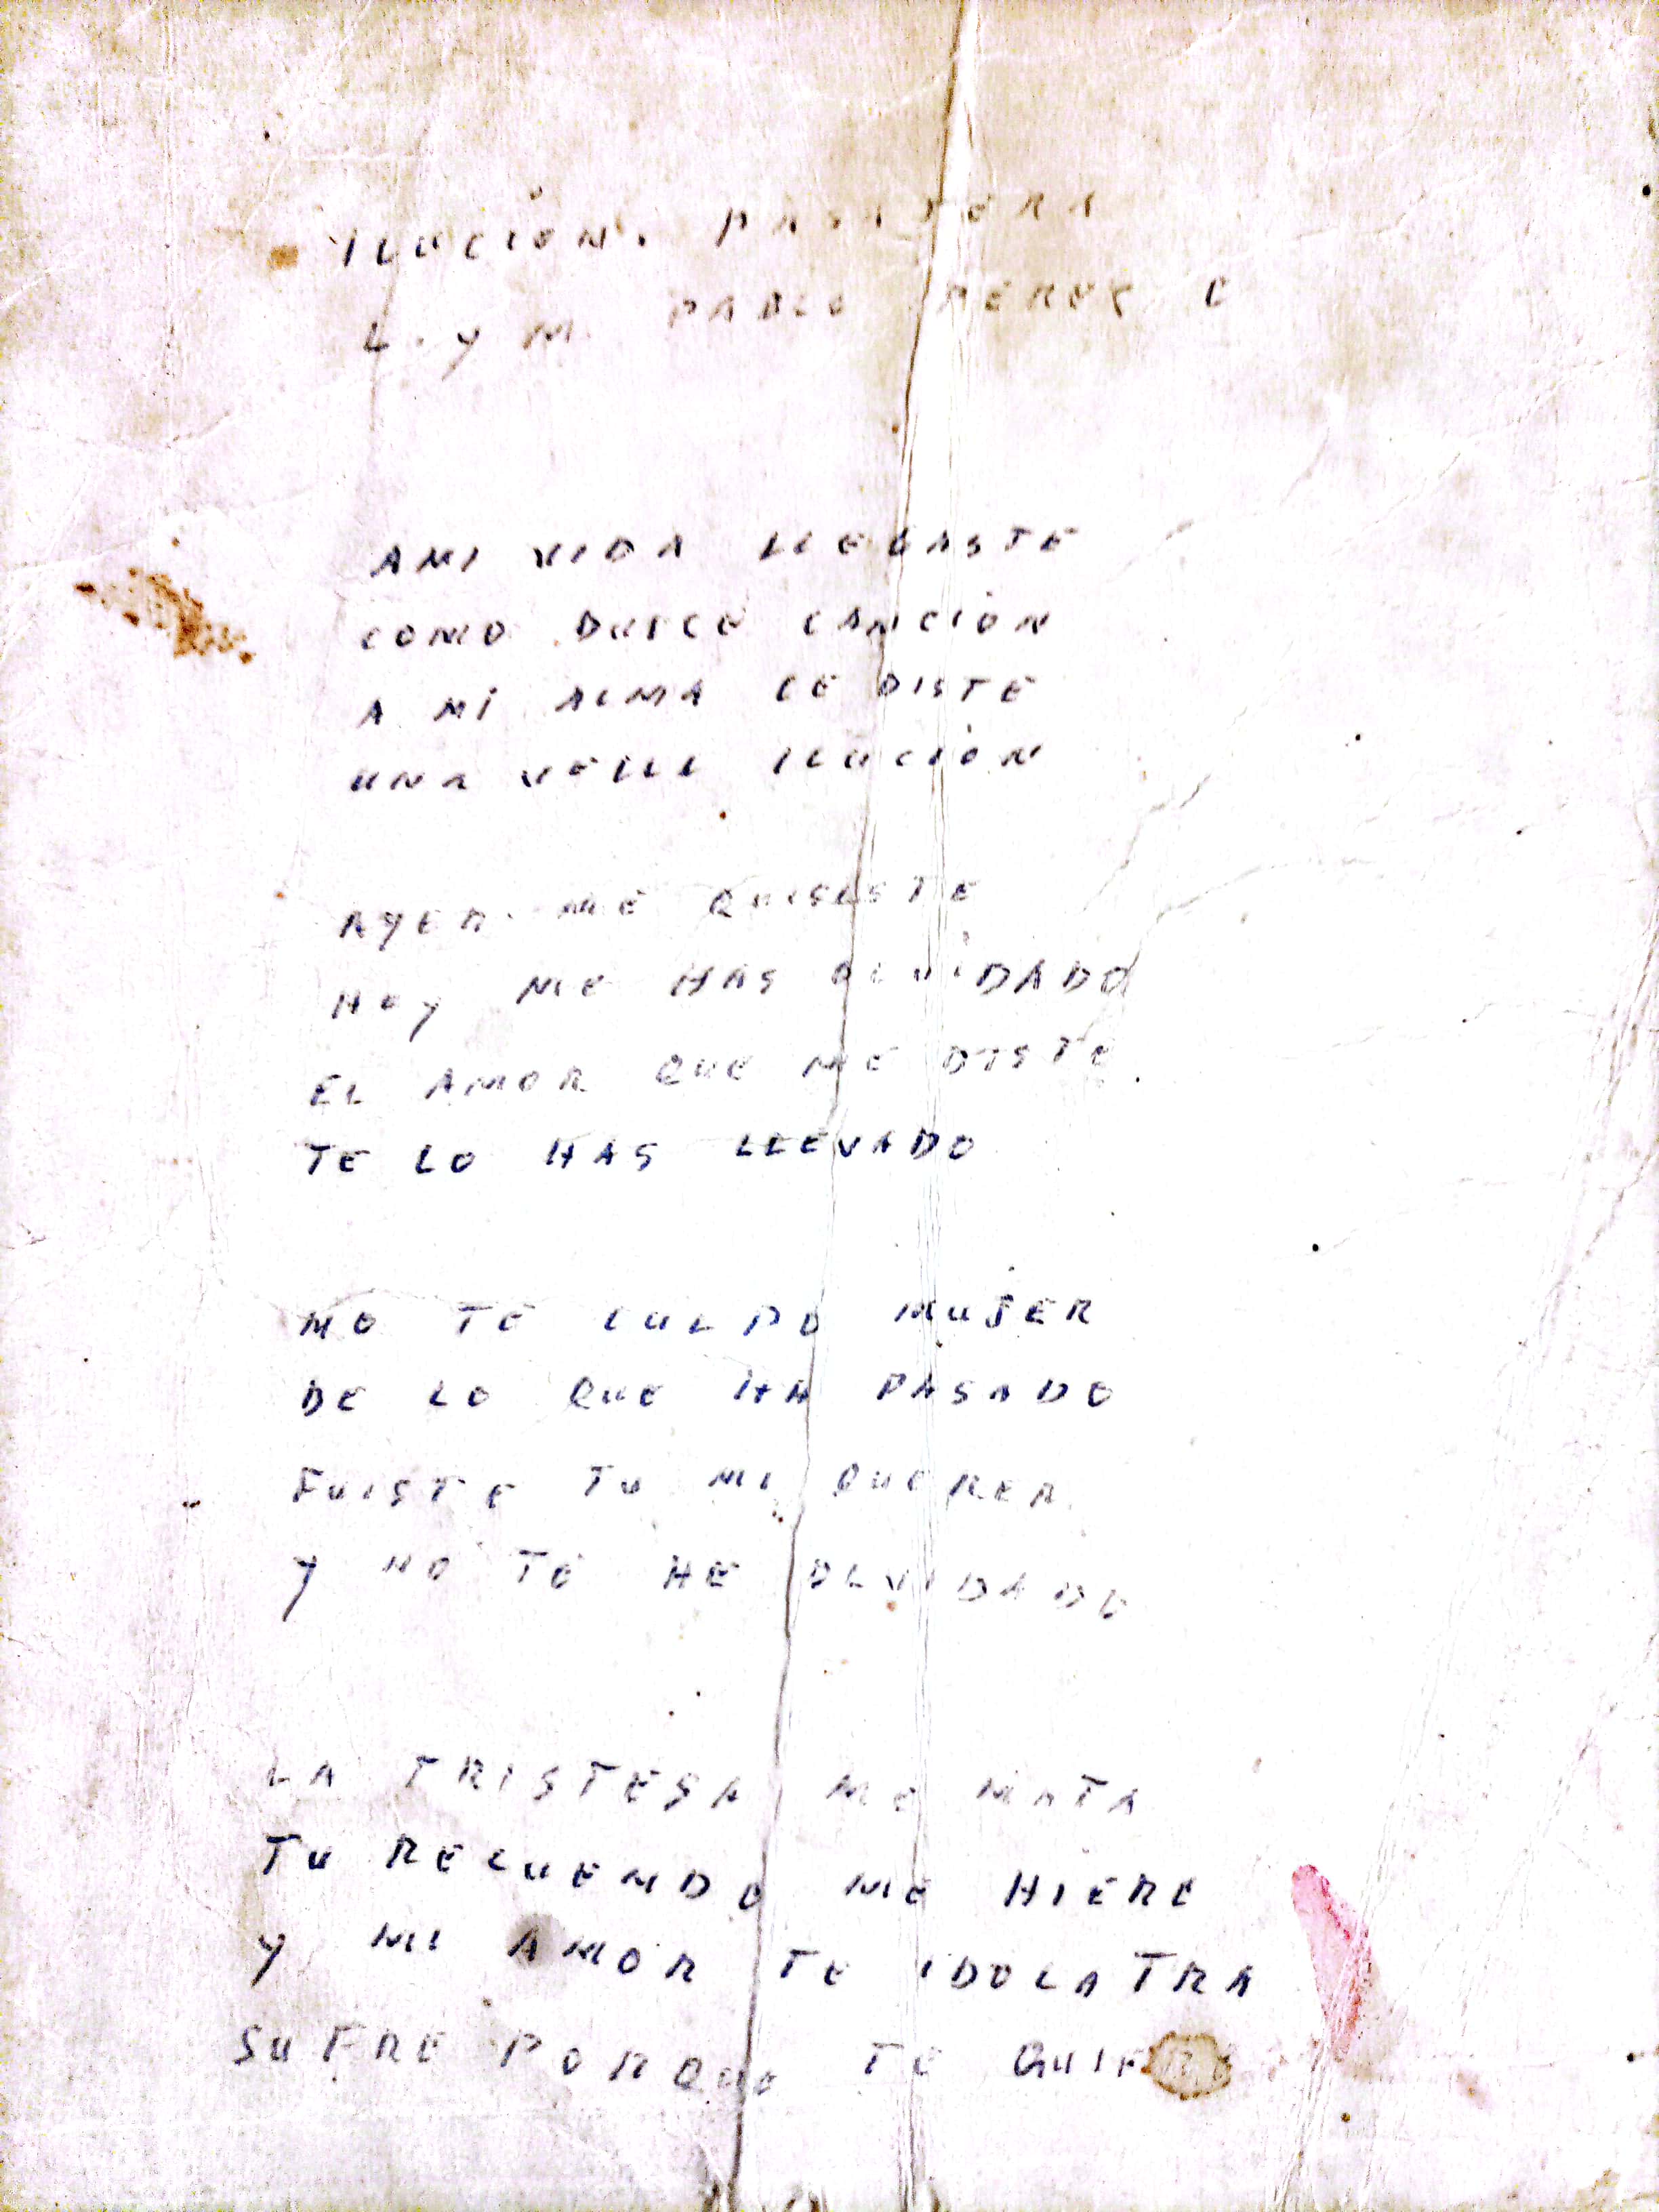 ILUCIÓN. PASAJERA
L. y M. PABLO PEREZ C
AMI VIDA LLEGASTE
COMO DULCE CANCIÓN
A MÍ ALMA LE DISTE
UNA VELLL ILUCIÓN
AYER ME QUISISTE
HOY ME HAS OLVIDADO
EL AMOR QUE ME DISTE
TE LO HAS LLEVADO
NO TE CULPO MUJER
DE LO QUE HA PASADO
FUISTE TU MI QUERER
Y NO TE HE OLVIDADO
LA TRISTESA ME MATA
TU RECUERDO ME HIERE
Y MI AMOR TE IDOLATRA
SUFRE PORQUE TE QUIERE